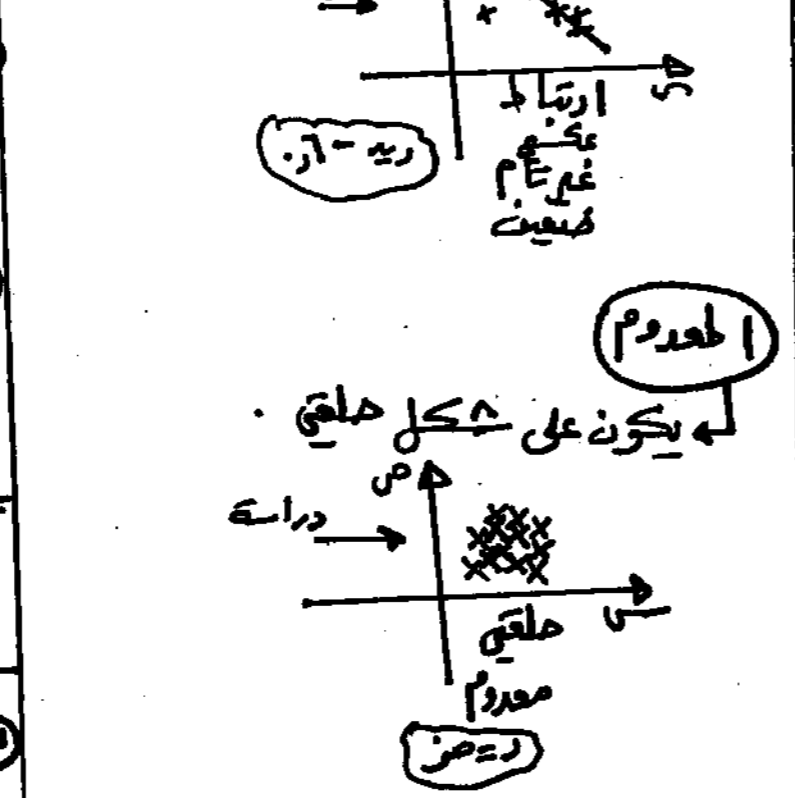 س
ارتباط
عكسي
غير تام
ضعيف
المعدوم
يكون على شكل حلقي .
ص
دراسة
س
حلقي
معدوم
ر = صفر